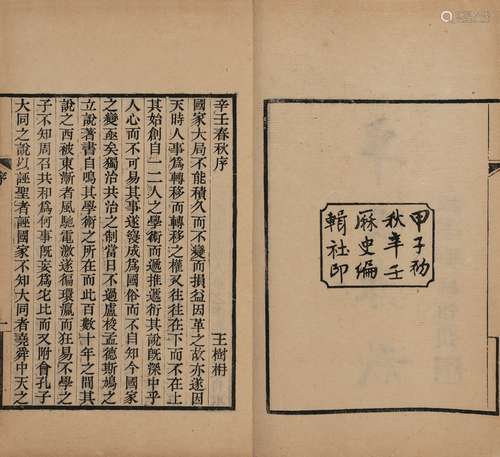 甲子初
秋辛壬
厤史編
輯社印
辛壬春秋序
王樹枏
國家大局不能積久而不變而損益因革之故亦遂因
天時人事爲轉移而轉移之權又往往在下而不在上
其始創自一二人之學術而遞推遞衍其說旣深中乎
人心而不可易其事遂發成爲國俗而不自知今國家
之變亟矣獨治共治之制當日不過盧梭孟德斯鳩之
立說著書自鳴其學術之所在而此百數十年之間其
說之西被東漸者風馳電激遂循環瀛而狂易不學之
子不知周召共和爲何事旣妄爲宅比而又附會孔子
大同之說以誣聖者誣國家不知大同者堯舜中天之
序
一